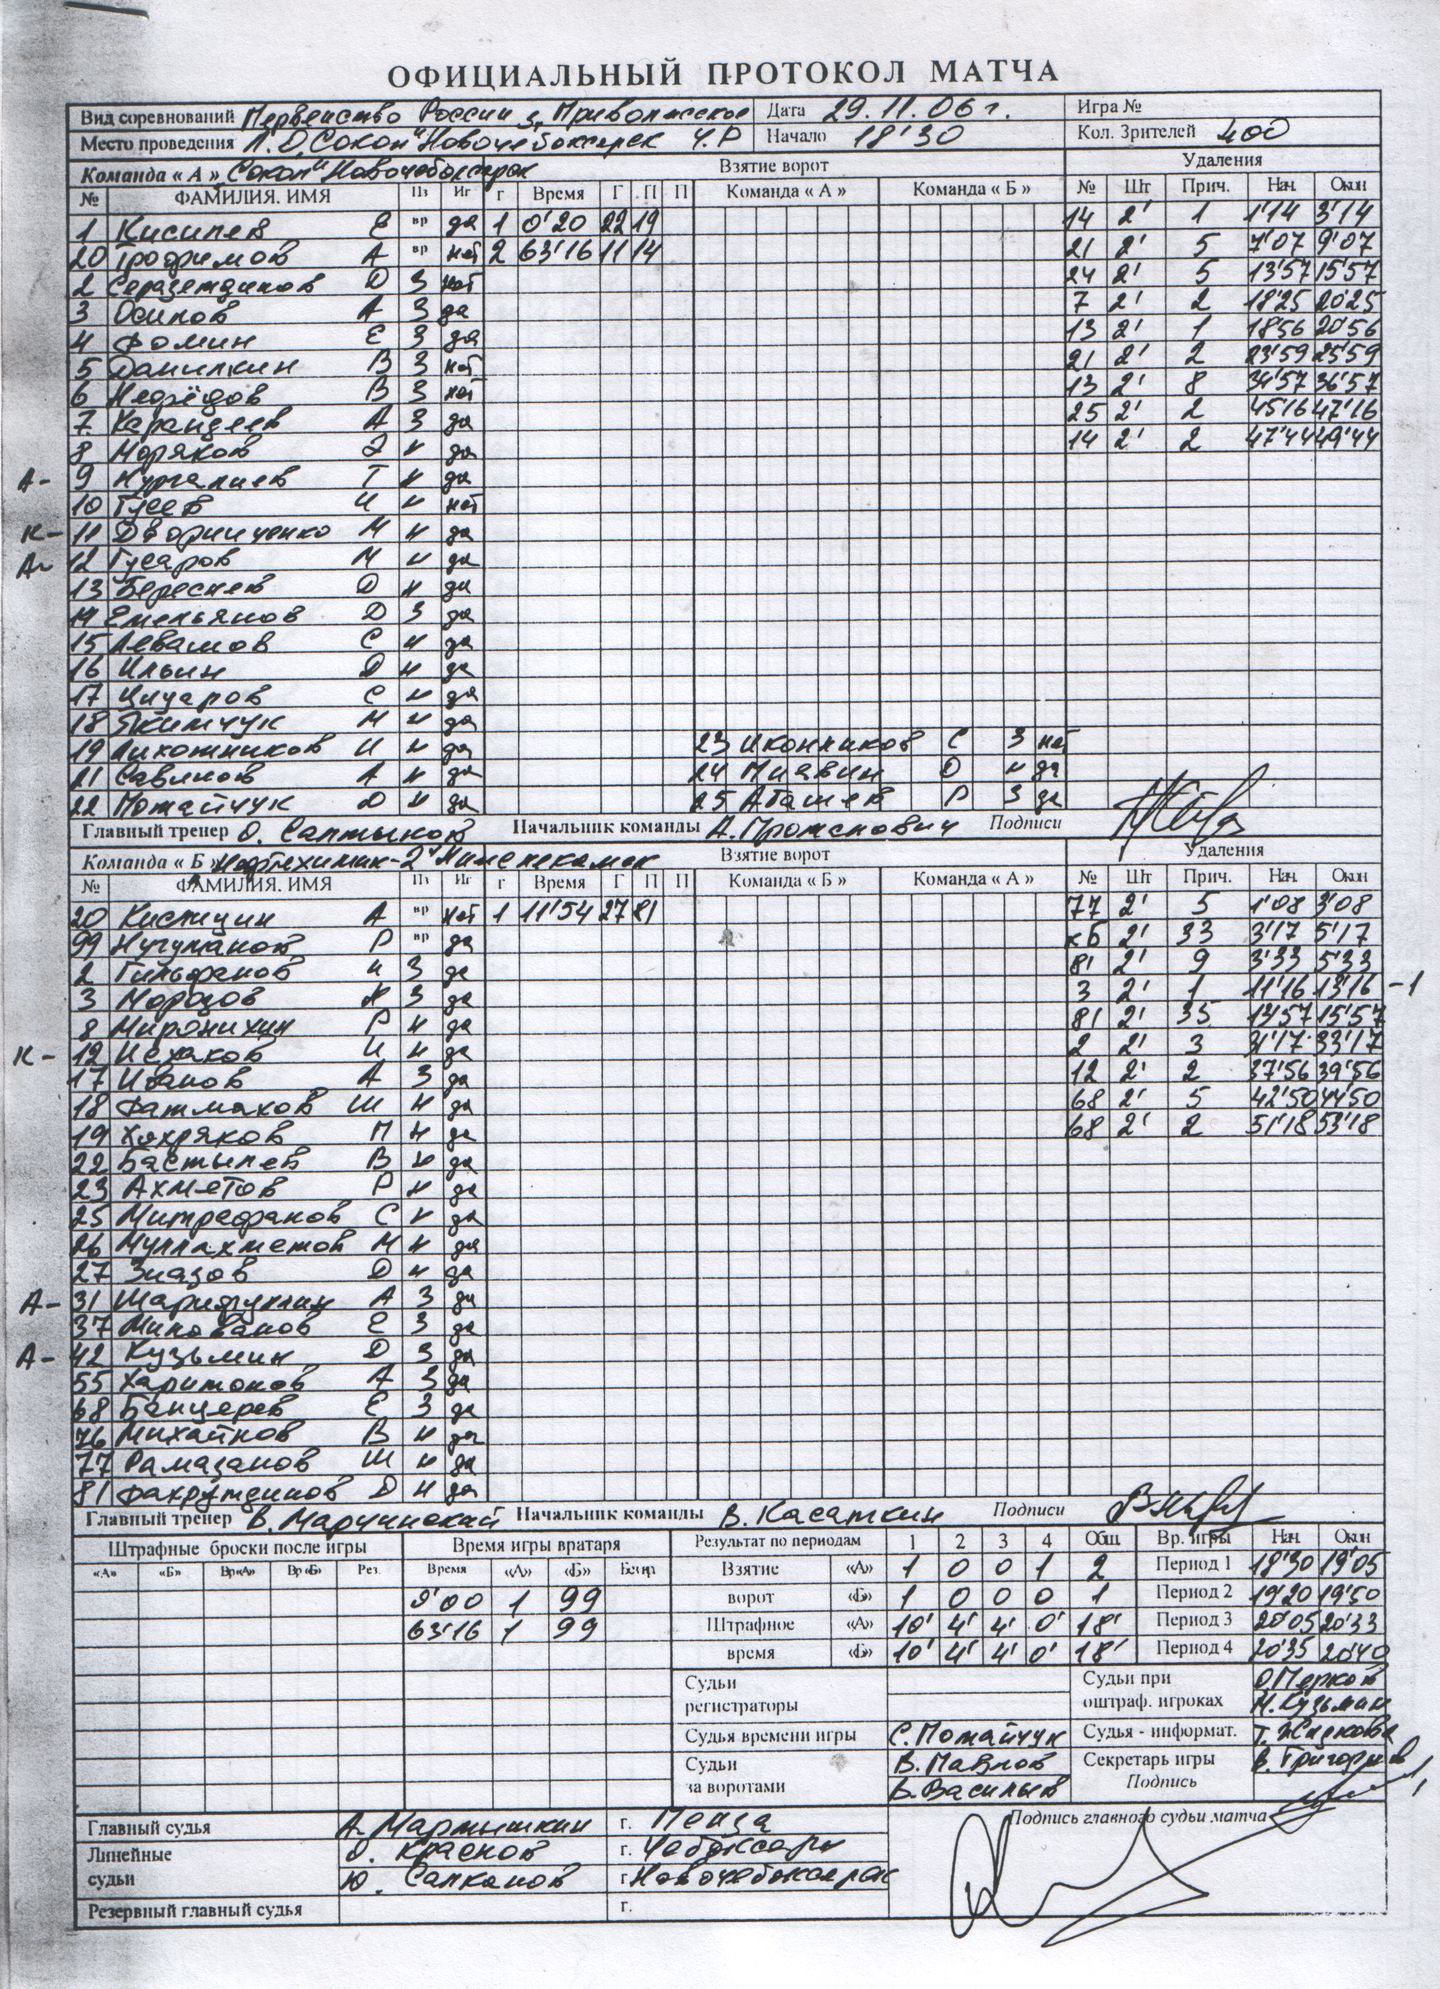 ОФИЦИАЛЬНЫЙ ПРОТОКОЛ МАТЧА
Вид соревнований Первенство России з. Приволжское Дата 29.11.06 г. Игра №
Место проведения Л.Д. Сокол" Новочебоксарск Ч.Р Начало 18'30 Кол. Зрителей 400
Команда « А » „Сокол" Новочебоксарск Взятие ворот Удаления
№ ФАМИЛИЯ. ИМЯ Пз Иг г Время Г П П Команда « А » Команда « Б » № Шт Прич. Нач. Окон
1 Киселев Е вр да 1 0'20 22 19 14 2' 1 1'14 3'14
20 Трофимов А вр нет 2 63'16 11 14 21 2' 5 7'07 9'07
2 Серазетдинов D З нет 24 2' 5 13'57 15'57
3 Осипов А З да 7 2' 2 18'25 20'25
4 Фомин Е З да 13 2' 1 18'56 20'56
5 Данилкин В З нет 21 2' 2 23'59 25'59
6 Нефёдов В З нет 13 2' 8 34'57 36'57
7 Карандеев А З да 25 2' 2 45'16 47'16
8 Моряков Э н да 14 2' 2 47'44 49'44
А- 9 Нургалиев Т н да
10 Гусев И н нет
к- 11 Дворниченко М н да
А- 12 Гусаров М н да
13 Береснев D н да
14 Емельянов D З да
15 Левашов С н да
16 Ильин D н да
17 Цицаров С н да
18 Якимчук М н да
19 Лихотников И н да 23 Иконников С З нет
21 Савинов А н да 24 Миавин D н да
22 Потайчук D н да 25 Абашев Р З да
Главный тренер О. Салтыков Начальник команды А. Протенович Подписи
Команда « Б » „Нефтехимик-2" Нижнекамск Взятие ворот Удаления
№ ФАМИЛИЯ. ИМЯ Пз Иг г Время Г П П Команда « Б » Команда « А » № Шт Прич. Нач. Окон
20 Кислицин А вр нет 1 11'54 27 81 77 2' 5 1'08 3'08
99 Нугуманов Р вр да кБ 2' 33 3'17 5'17
2 Гильфанов И З да 81 2' 9 3'33 5'33
3 Морозов К З да 3 2' 1 11'16 13'16 -1
8 Миронихин Р н да 81 2' 35 14'57 15'57
к- 12 Исхаков И н да 2 2' 3 31'17 33'17
17 Иванов А З да 12 2' 2 37'56 39'56
18 Фатмахов Ш н да 68 2' 5 42'50 44'50
19 Хохряков П н да 68 2' 2 51'18 53'18
22 Бастылев В н да
23 Ахметов Р н да
25 Митрофанов С н да
26 Муллахметов М н да
27 Зиазов D н да
А- 31 Шарифуллин А З да
37 Милованов Е З да
А- 42 Кузьмин D З да
55 Харитонов А З да
68 Банцерев Е З да
76 Михайлов В н да
77 Рамазанов Ш н да
81 Фахрутдинов D н да
Главный тренер В. Марчинский Начальник команды В. Касаткин Подписи
Штрафные броски после игры Время игры вратаря Результат по периодам 1 2 3 4 Общ. Вр. игры Нач. Окон
«А» «Б» Вр«А» Вр«Б» Рез. Время «А» «Б» Взятие «А» 1 0 0 1 2 Период 1 18'30 19'05
0'00 1 99 ворот «Б» 1 0 0 0 1 Период 2 19'20 19'50
63'16 1 99 Штрафное «А» 10' 4' 4' 0' 18' Период 3 20'05 20'33
время «Б» 10' 4' 4' 0' 18' Период 4 20'35 20'40
Судьи регистраторы Судьи при оштраф. игроках О. Перков
Н. Кузьмин
Судья времени игры С. Потайчук Судья - информат. Т. Жидкова
Судьи за воротами В. Павлов Секретарь игры В. Григорьев
В. Васильев Подпись
Главный судья А. Мартышкин г. Пенза Подпись главного судьи матча
Линейные О. Краснов г. Чебоксары
судьи Ю. Салканов г. Новочебоксарск
Резервный главный судья г.